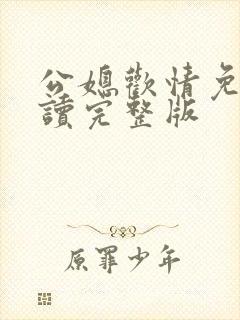 公媳歡情免
讀完整版
原罪少年